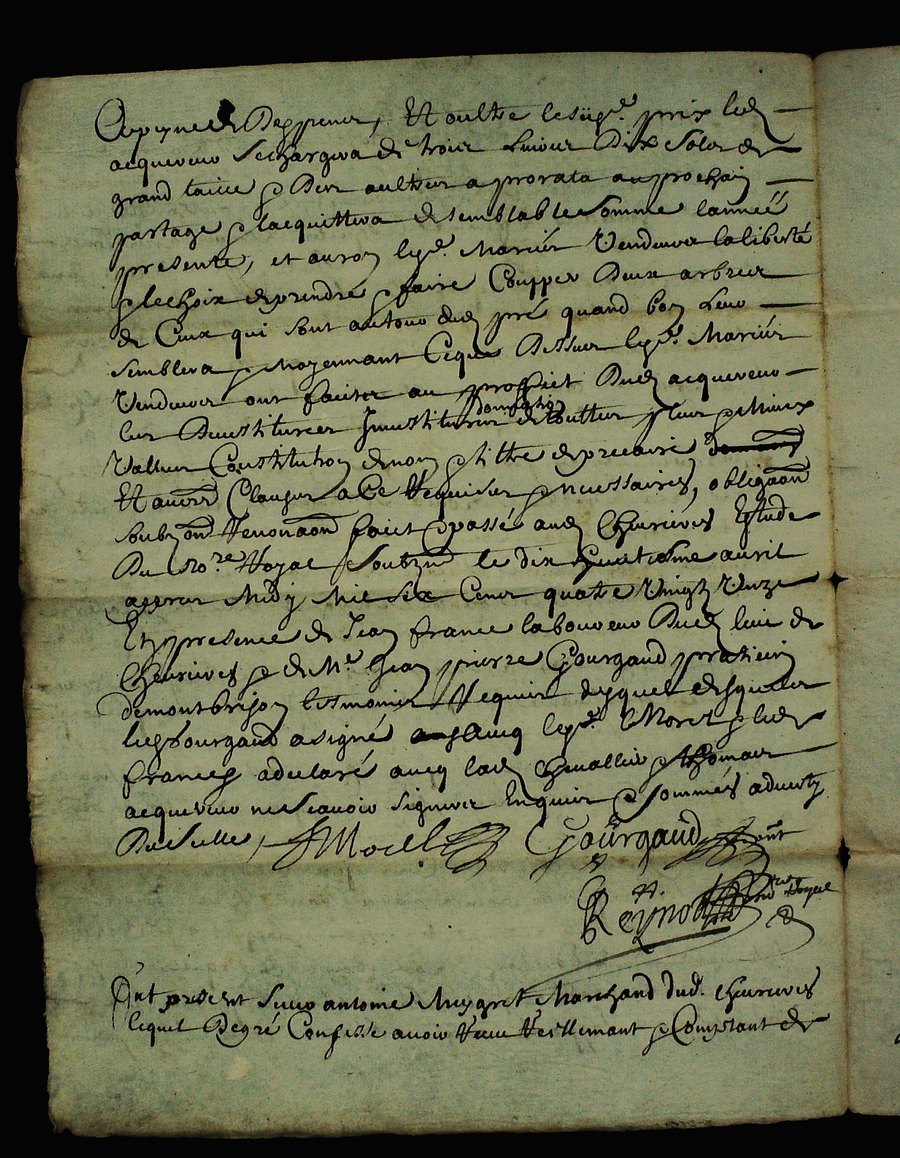 Apeyne de Despens, Et oultre lesusd. prix led.
acquereur sechargera de trois Livres Dix Solz de
grand taille & Des aultres a prorata au prochain
partage & lacquittera de semblable somme lannéé
presente, et auron lesd. Mariés Vendeurs la liberté
& le choix de prendre & faire Coupper Deux arbres
de Ceux qui sont autour dud. pré quand bon Leur
semblera & Moyennant Ceque Dessus lesd. Mariés
Vendeurs ont faites au proffict Dud. acquereur
les Devestitures Investitures de touttes plus & Mieux
Vallues Constitution de nom & tiltre de precaire
Et autres Clauses a Ce Requises & necessaires, obligaon
soubzon Renonaon faict & passé aud. Cheurieres Estude
Du No.re Royal Soubzné le dix huictiesme auril
apres Midy Mil six Cens quatre Vingt Unze
En presence de Jean france laboureur Dud. lieu de
Cheurieres & de Me. Jean pierre Gourgaud praticien
de montbrison tesmoins Requis desquels
led Gourgaud a signé auecq lesd. Morel & led.
france a declaré auecq lad. Chevallier & thomas
acquereur ne Scauoir signer Enquis & Sommés
Morel Gourgaud
Reynod no.re Royal
Est present Sieur antoine Meygret Marchand dud. cheurieres
lequel Degré Confesse auoir Receu Reellemant & Comptant de